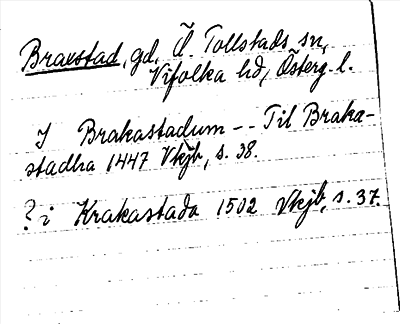 Braestad, gd, Ö. Tollstads sn,
Vifolka hd, Österg. l.
I Brakastadum -- Til Braka-
stadha 1447 Vkjb, s. 38.
? i Krakastada 1502 Vkjb, s. 37.